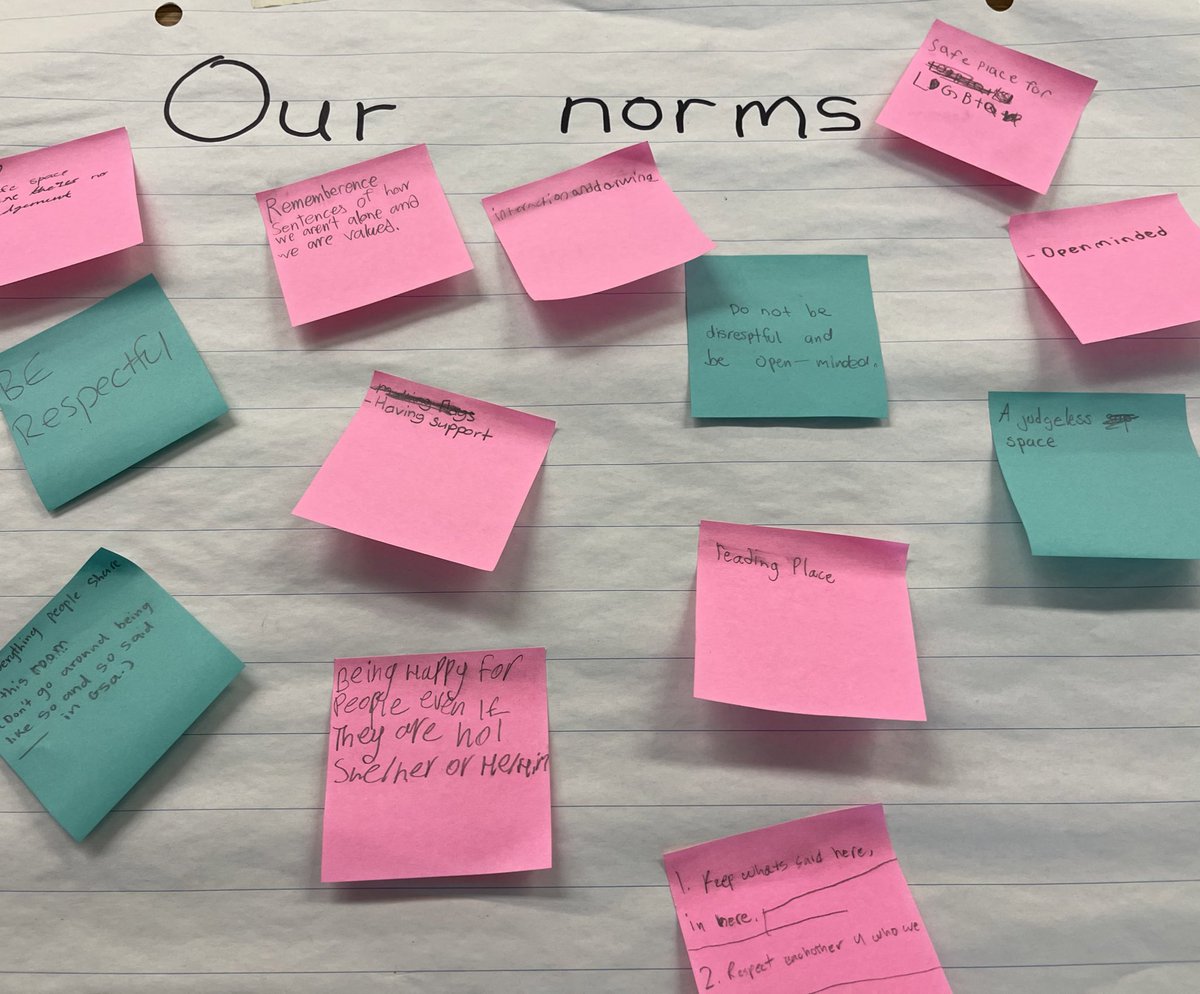 Our norms
safe place for
LGBTQ
space
no
Rememberence
Sentences of how
we aren't alone and
we are valued.
interaction and drawing
- Openminded
BE
Respectful
Do not be
disresptful and
be open-minded.
- Having support
A judgeless
space
reading Place
everything people share
this room
(Don't go around being
like so and so said
in GSA.)
Being Happy for
People even If
They are not
She/her or He/Him
1. Keep whats said here,
in here.
2. Respect eachother & who we